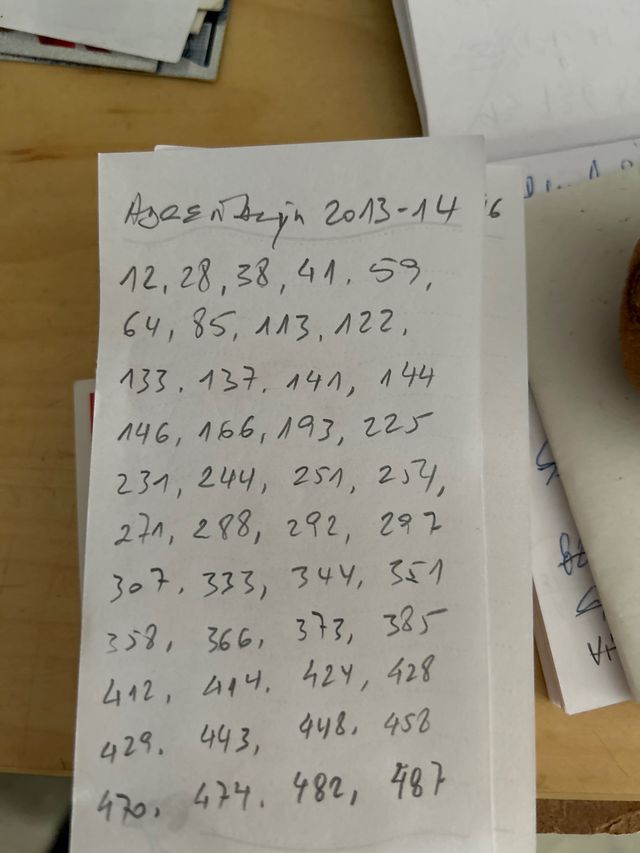 2013-14
12, 28, 38, 41. 59,
64, 85, 113, 122,
133. 137. 141, 144
146, 166, 193, 225
231, 244, 251, 254,
271, 288, 292, 297
307. 333, 344, 351
358, 366, 373, 385
412, 414. 424, 428
429. 443, 448. 458
470. 474. 482, 487